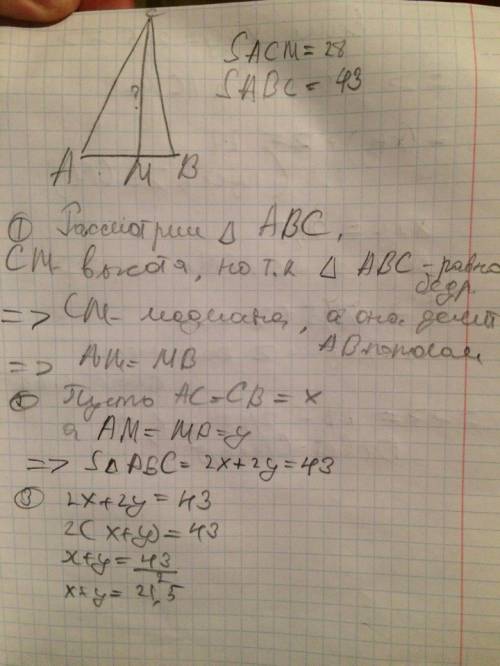 C
SACM = 28
SABC = 43
?
A M B
① Рассмотрим △ ABC,
CM - высота, но т.к △ ABC - равно
бедр.
=> CM - медиана, а она делит
AB попопам
=> AM = MB
② Пусть AC = CB = x
а AM = MB = y
=> S△ABC = 2x+2y = 43
③ 2x+2y = 43
2(x+y) = 43
x+y = 43/2
x+y = 21,5